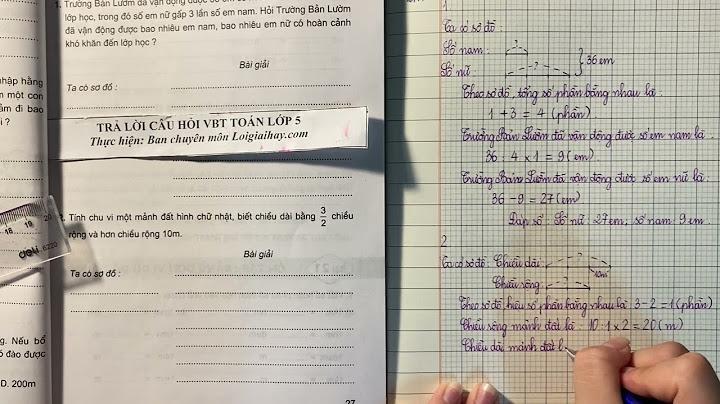 1. Trường Bản Lướm đã vận động được số em
lớp học, trong đó số em nữ gấp 3 lần số em nam. Hỏi Trường Bản Lướm
đã vận động được bao nhiêu em nam, bao nhiêu em nữ có hoàn cảnh
khó khăn đến lớp học ?
Bài giải
Ta có sơ đồ :
TRẢ LỜI CÂU HỎI VBT TOÁN LỚP 5
Thực hiện: Ban chuyên môn Loigiaihay.com
2. Tính chu vi một mảnh đất hình chữ nhật, biết chiều dài bằng 3/2 chiều
rộng và hơn chiều rộng 10m.
Bài giải
Ta có sơ đồ :
27
nhập hàng
một con
bao
i ?
18 19 20
deli 6220
g. Nếu bổ
đào được
D. 200m
1
Ta có sơ đồ :
Số nam : ?
36 em
Số nữ : ?
Theo sơ đồ, tổng số phần bằng nhau là :
1 + 3 = 4 (phần)
Trường Bản Lướm đã vận động được số em nam là :
36 : 4 x 1 = 9 (em)
Trường Bản Lướm đã vận động được số em nữ là :
36 - 9 = 27 (em)
Đáp số : Số nữ : 27 em; số nam : 9 em.
2
Ta có sơ đồ : Chiều dài : ?
10m
Chiều rộng : ?
Theo sơ đồ, hiệu số phần bằng nhau là : 3 - 2 = 1 (phần)
Chiều rộng mảnh đất là : 10 : 1 x 2 = 20 (m)
Chiều dài mảnh đất l